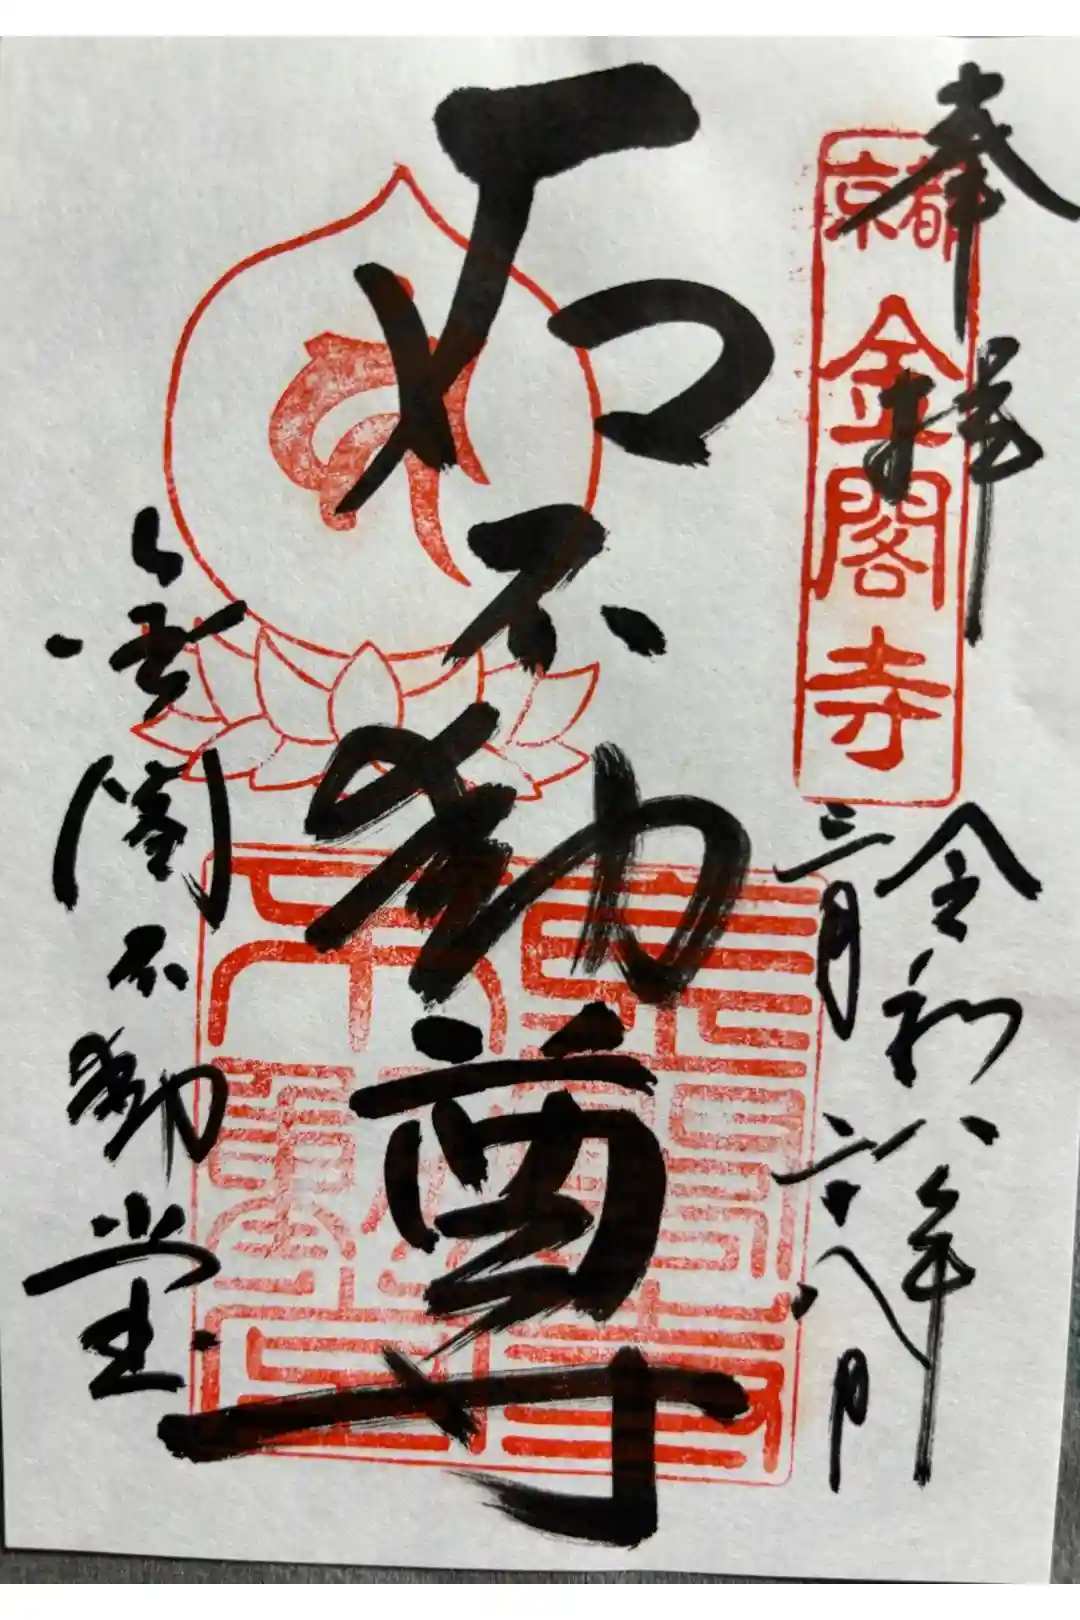 奉拝
京都
金閣寺
令和八年
三月二十八日
石不動尊
金閣不動堂